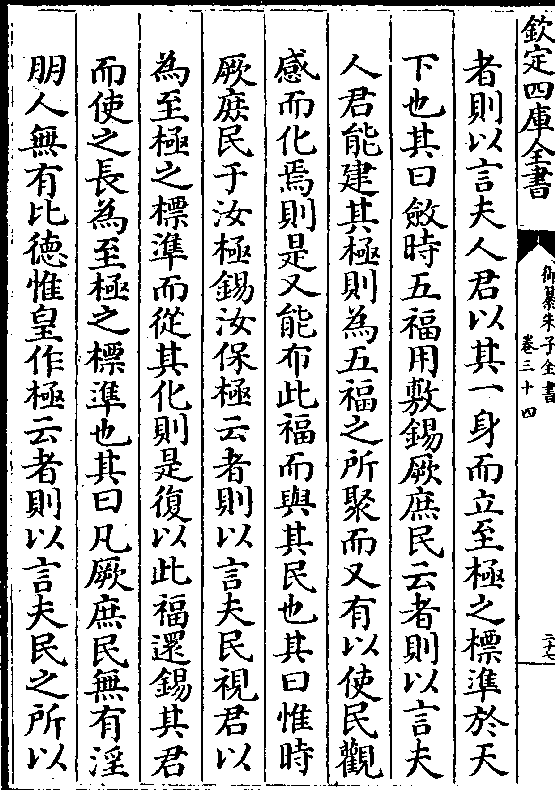 欽定四庫全書
御纂朱子全書
卷三十四
者則以言夫人君以其一身而立至極之標準於天
下也其曰斂時五福用敷錫厥庶民云者則以言夫
人君能建其極則為五福之所聚而又有以使民觀
感而化焉則是又能布此福而與其民也其曰惟時
厥庶民于汝極錫汝保極云者則以言夫民視君以
為至極之標準而從其化則是復以此福還錫其君
而使之長為至極之標準也其曰凡厥庶民無有淫
朋人無有比德惟皇作極云者則以言夫民之所以